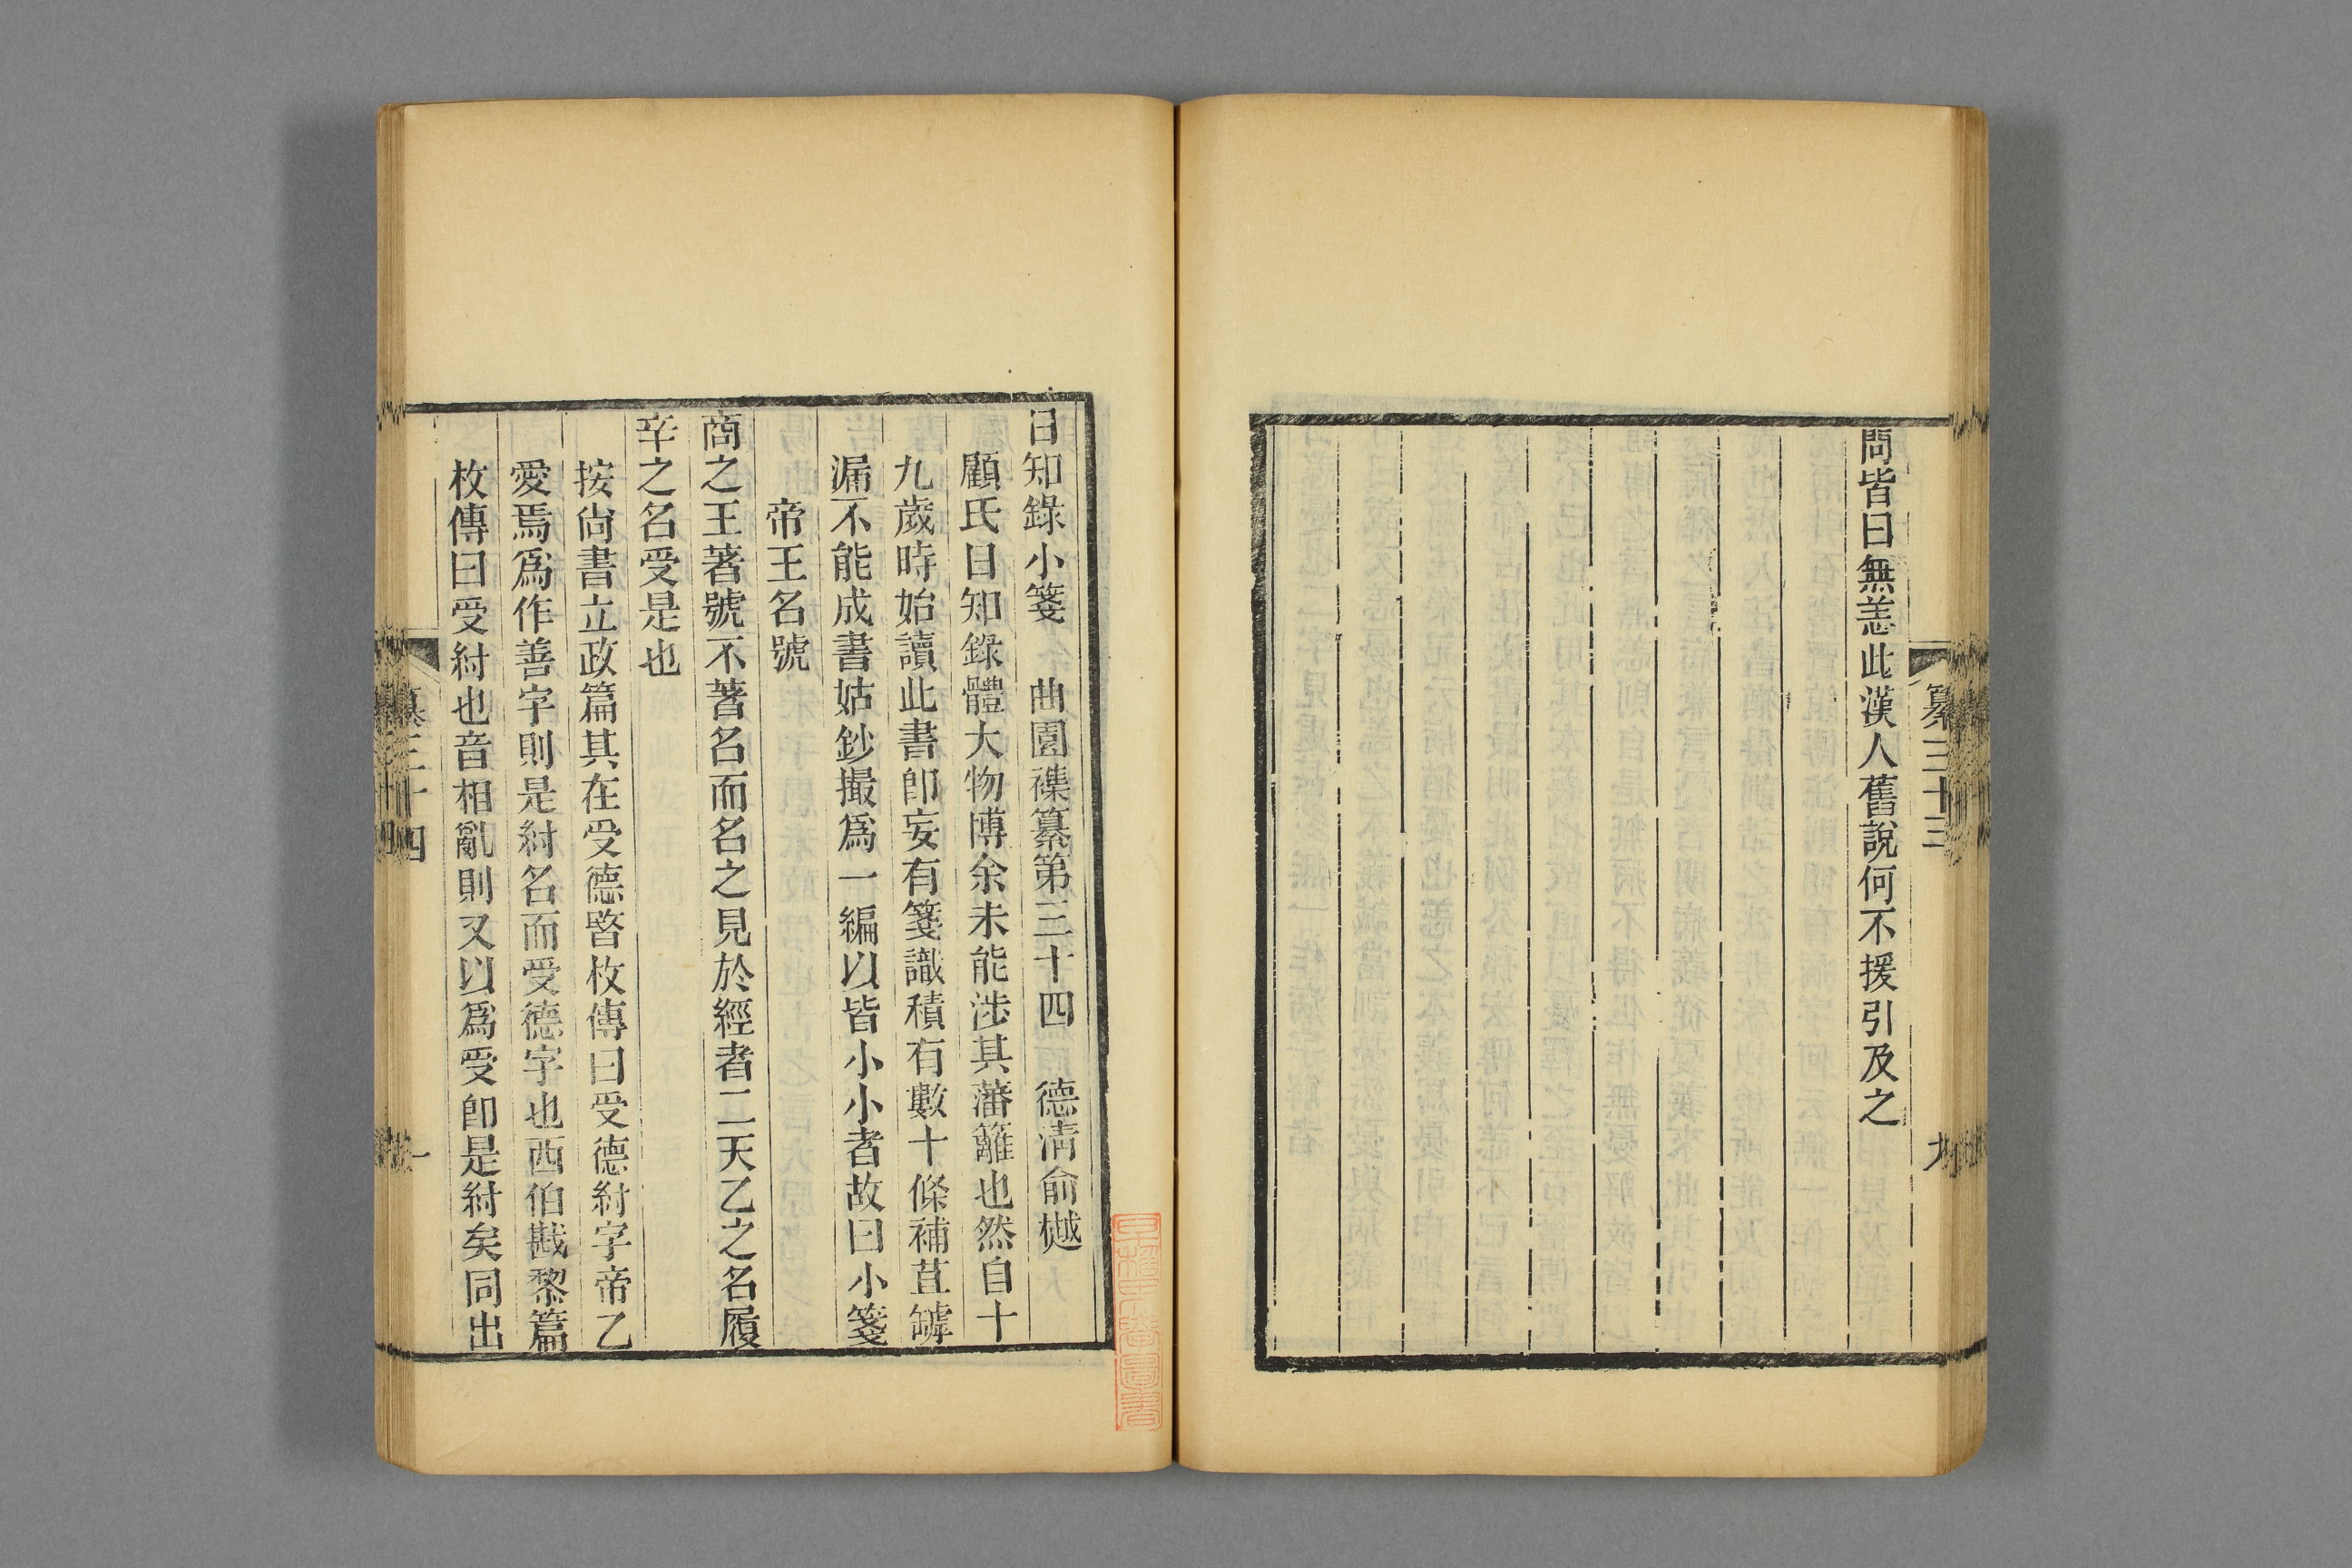 問皆曰無恙此漢人舊說何不援引及之
纂三十三
九
日知錄小箋 曲園襍纂第三十四 德淸俞樾
顧氏日知錄體大物博余未能涉其藩籬也然自十
九歲時始讀此書卽妄有箋識積有數十條補苴罅
漏不能成書姑鈔撮爲一編以皆小小者故曰小箋
帝王名號
商之王著號不著名而名之見於經者二天乙之名履
辛之名受是也
按尙書立政篇其在受德暋枚傳曰受德紂字帝乙
愛焉爲作善字則是紂名而受德字也西伯戡黎篇
枚傳曰受紂也音相亂則又以爲受卽是紂矣同出
纂三十四
一